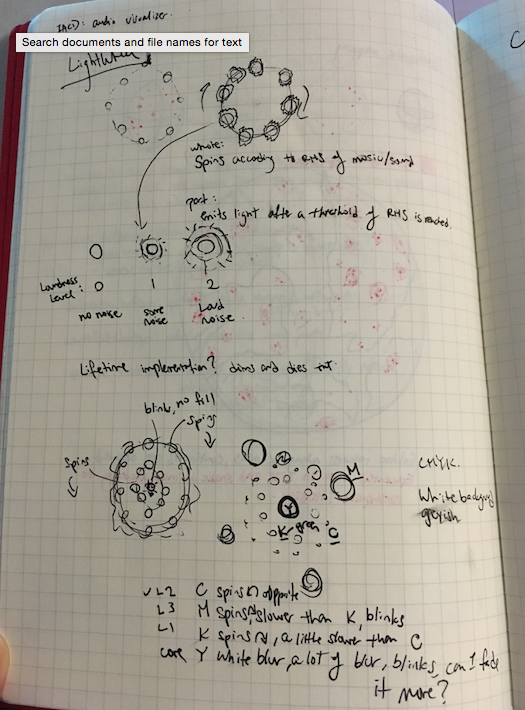 IACD: audio visualizer.
Search documents and file names for text
LightWheel
whole:
Spins according to RMS of music/sound
part:
emits light after a threshold of RMS is reached.
Loudness
Level:
0
1
2
no noise
some
noise
Loud
noise.
Lifetime implementation? dims and dies out
blink, no fill
spins
spins
M
Y
K
green
CMYK.
White background
greyish
L2 C spins opposite
L3 M spins, slower than K, blinks
L1 K spins, a little slower than C
core Y white blur, a lot of blur, blinks, can I fade
it more?